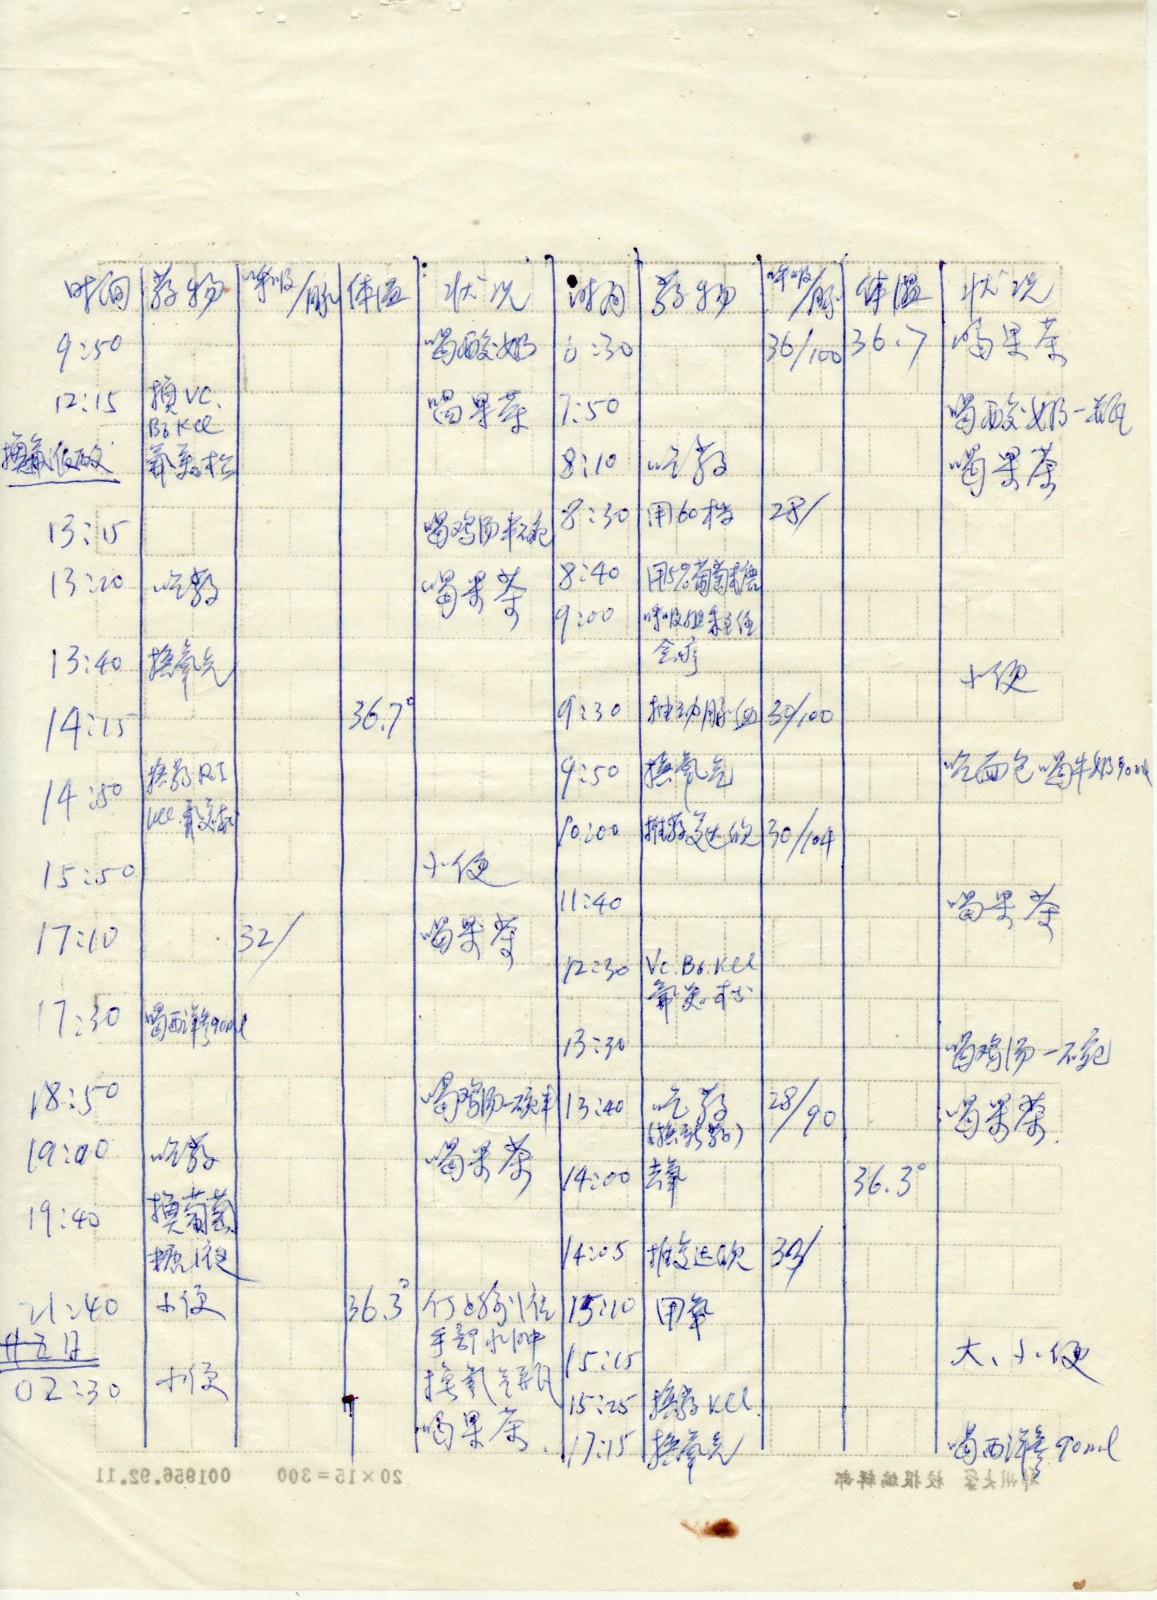 时间 药物 呼吸/脉 体温 状况
9:50 喝酸奶
12:15 换VC. 喝果茶
B6 KCl
氟美松
13:15 喝鸡汤半碗
13:20 吃药 喝果茶
13:40 换氧气
14:15 36.7°
14:50 换药 RI
KCl.氟美松
15:50 小便
17:10 32/ 喝果茶
17:30 喝西洋参90ml
18:50 喝鸡汤一碗半
19:00 吃药 喝果茶
19:40 换葡萄
糖液
21:40 小便 36.3°
手部水肿
廿五日
02:30 小便 换氧气瓶
喝果茶.
时间 药物 呼吸/脉 体温 状况
6:30 36/100 36.7 喝果茶
7:50 喝酸奶一瓶
8:10 吃药 喝果茶
8:30 28/
8:40 用5%葡萄糖
9:00 呼吸组 主任
会诊
小便
9:30 抽动脉血 30/100
9:50 换氧气 吃面包喝牛奶90ml
10:00 30/104
11:40 喝果茶
12:30 Vc.B6.KCl
氟美松
13:30 喝鸡汤一碗
13:40 吃药 28/90 喝果茶.
(换新药)
14:00 去氧 36.3°
14:05 30/
15:10 用氧
15:15 大、小便
15:25 换药KCl.
17:15 换氧气 喝西洋参90ml
001956.92.11 20×15=300 郑州大学校报编辑部